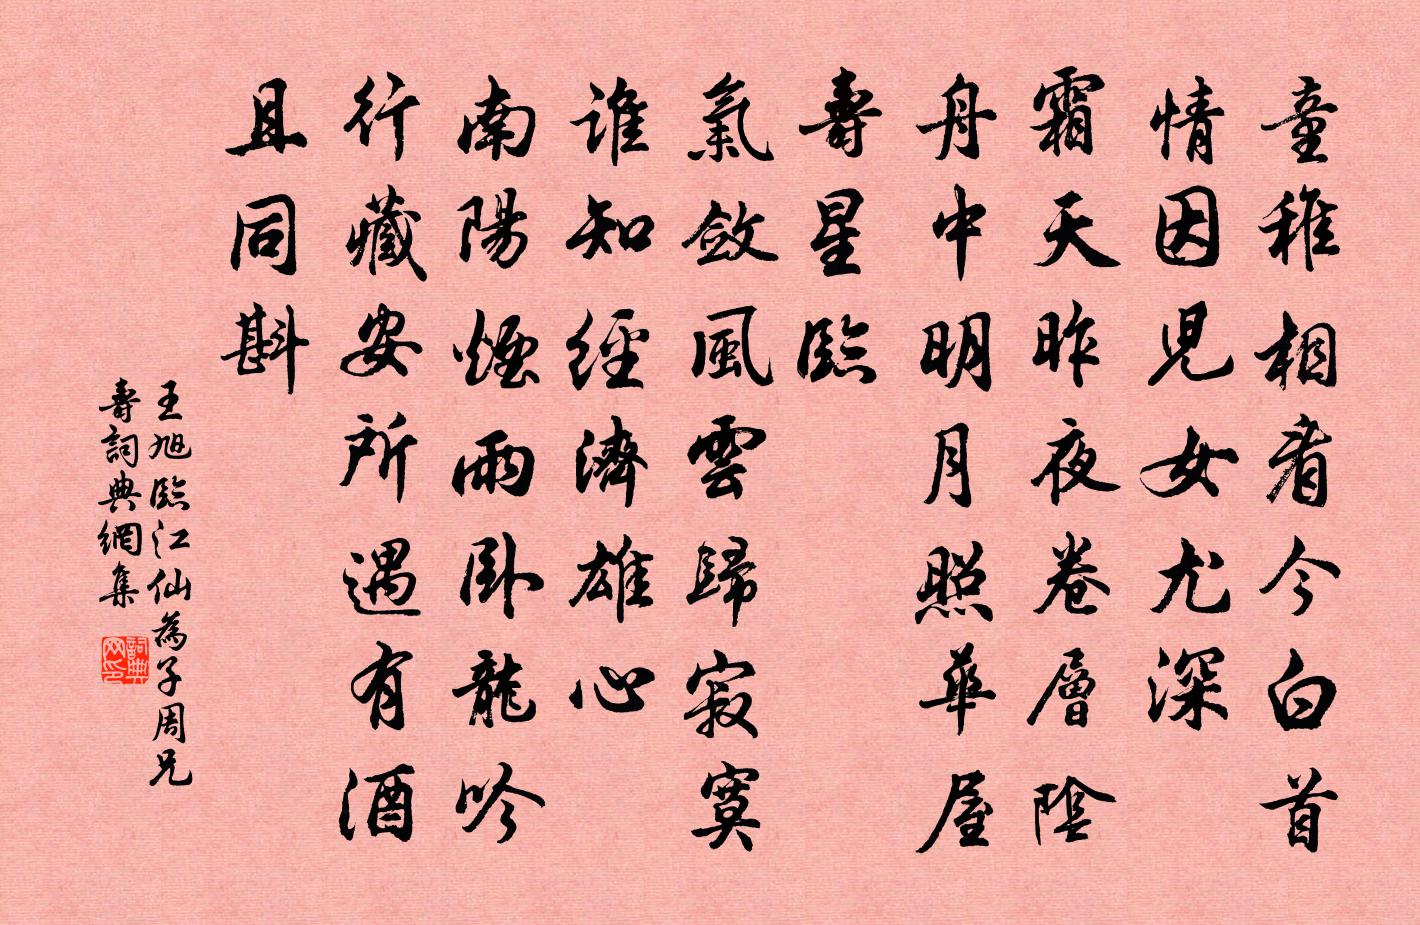 童稚相看今白首
情因兒女尤深
霜天昨夜卷層陰
舟中明月照華屋
壽星臨
氣斂風雲歸寂寞
誰知經濟雄心
南陽煙雨卧龍吟
行藏安所遇有酒
且同斟
王旭臨江仙為子周兄
壽詞典網集
詞典网印